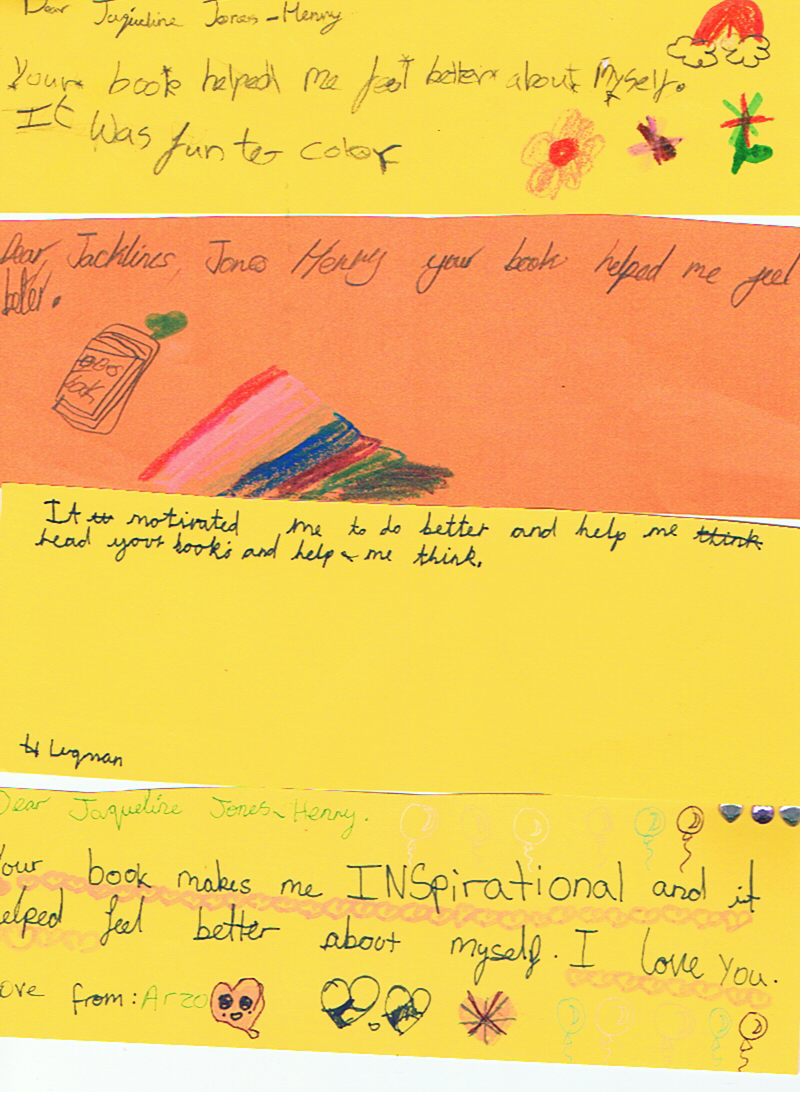 Dear Jaqueline Jones-Henry
Your book helped me feel better about Myself.
It Was fun to color
Dear, Jacklines, Jones Henry your book helped me feel
beter.
It motivated me to do better and help me think
read your book's and help me think.
Luqman
Dear Jaqueline Jones-Henry.
Your book makes me INSpirational and it
helped feel better about myself. I love you.
love from: Arzo